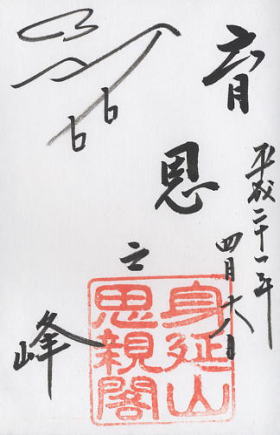 平成二十一年
四月十八日
育恩之峰
身延山
思親閣